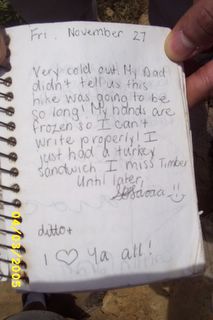 Fri. November 27
Very cold out! My Dad
didn't tell us this
hike was going to be
so long! My hands are
frozen so I can't
write properly! I
just had a turkey
sandwich I miss Timber
Until later,
ditto+
I ♡ Ya all!
04/03/2005